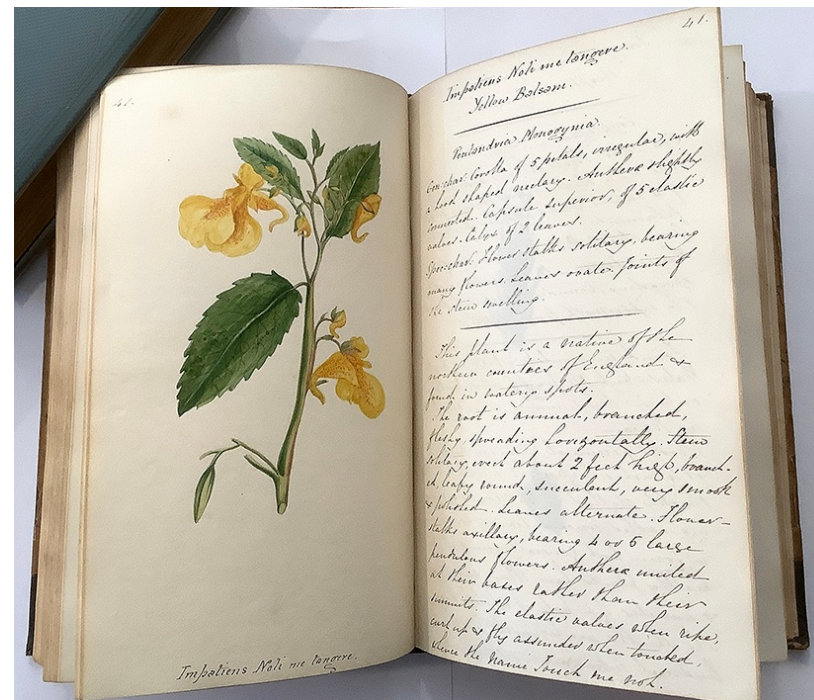 41.
Impatiens Noli me tangere.
41.
Impatiens Noli me tangere.
Yellow Balsam.
Pentandria Monogynia.
Gen: char: Corolla of 5 petals, irregular, with
a hood shaped nectary. Anthera slightly
connected. Capsule superior, of 5 elastic
valves. Calyx of 2 leaves.
Spec: char: Flower stalks solitary, bearing
many flowers. Leaves ovate. Joints of
the stem swelling.
This plant is a native of the
northern counties of England &
found in watery spots.
The root is annual, branched,
fleshy, spreading horizontally. Stem
solitary, erect about 2 feet high, branch-
ed, leafy round, succulent, very smooth
& polished. Leaves alternate. Flower-
stalks axillary, bearing 4 or 5 large
pendulous flowers. Anthera united
at their bases rather than their
summits. The elastic valves when ripe,
curl up & fly assunder when touched,
whence the name Touch me not.